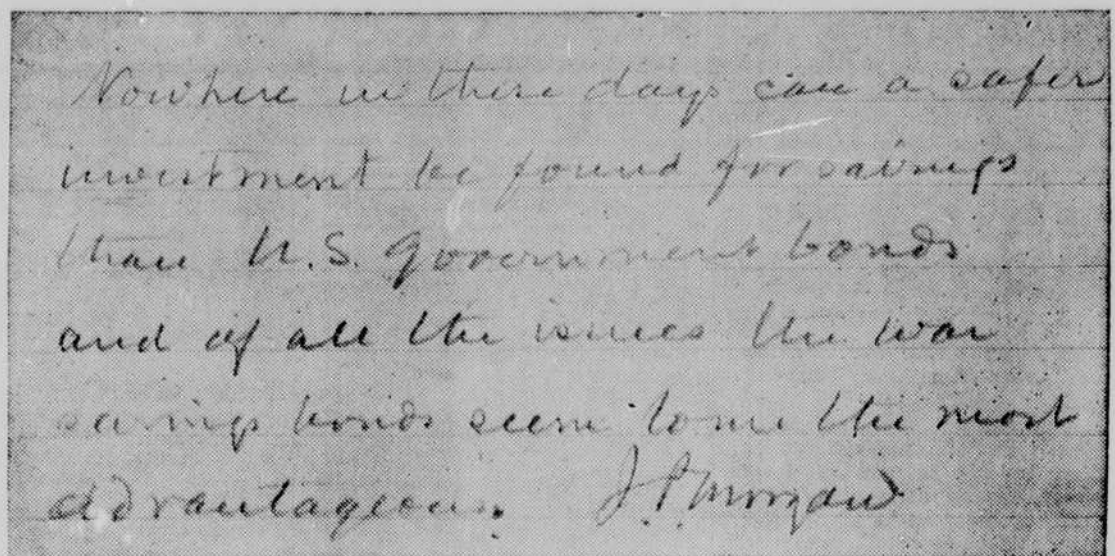 Nowhere in these days can a safer
investment be found for savings
than U.S. Government bonds
and of all the issues the war
savings bonds seem to me the most
advantageous. J.P. Morgan